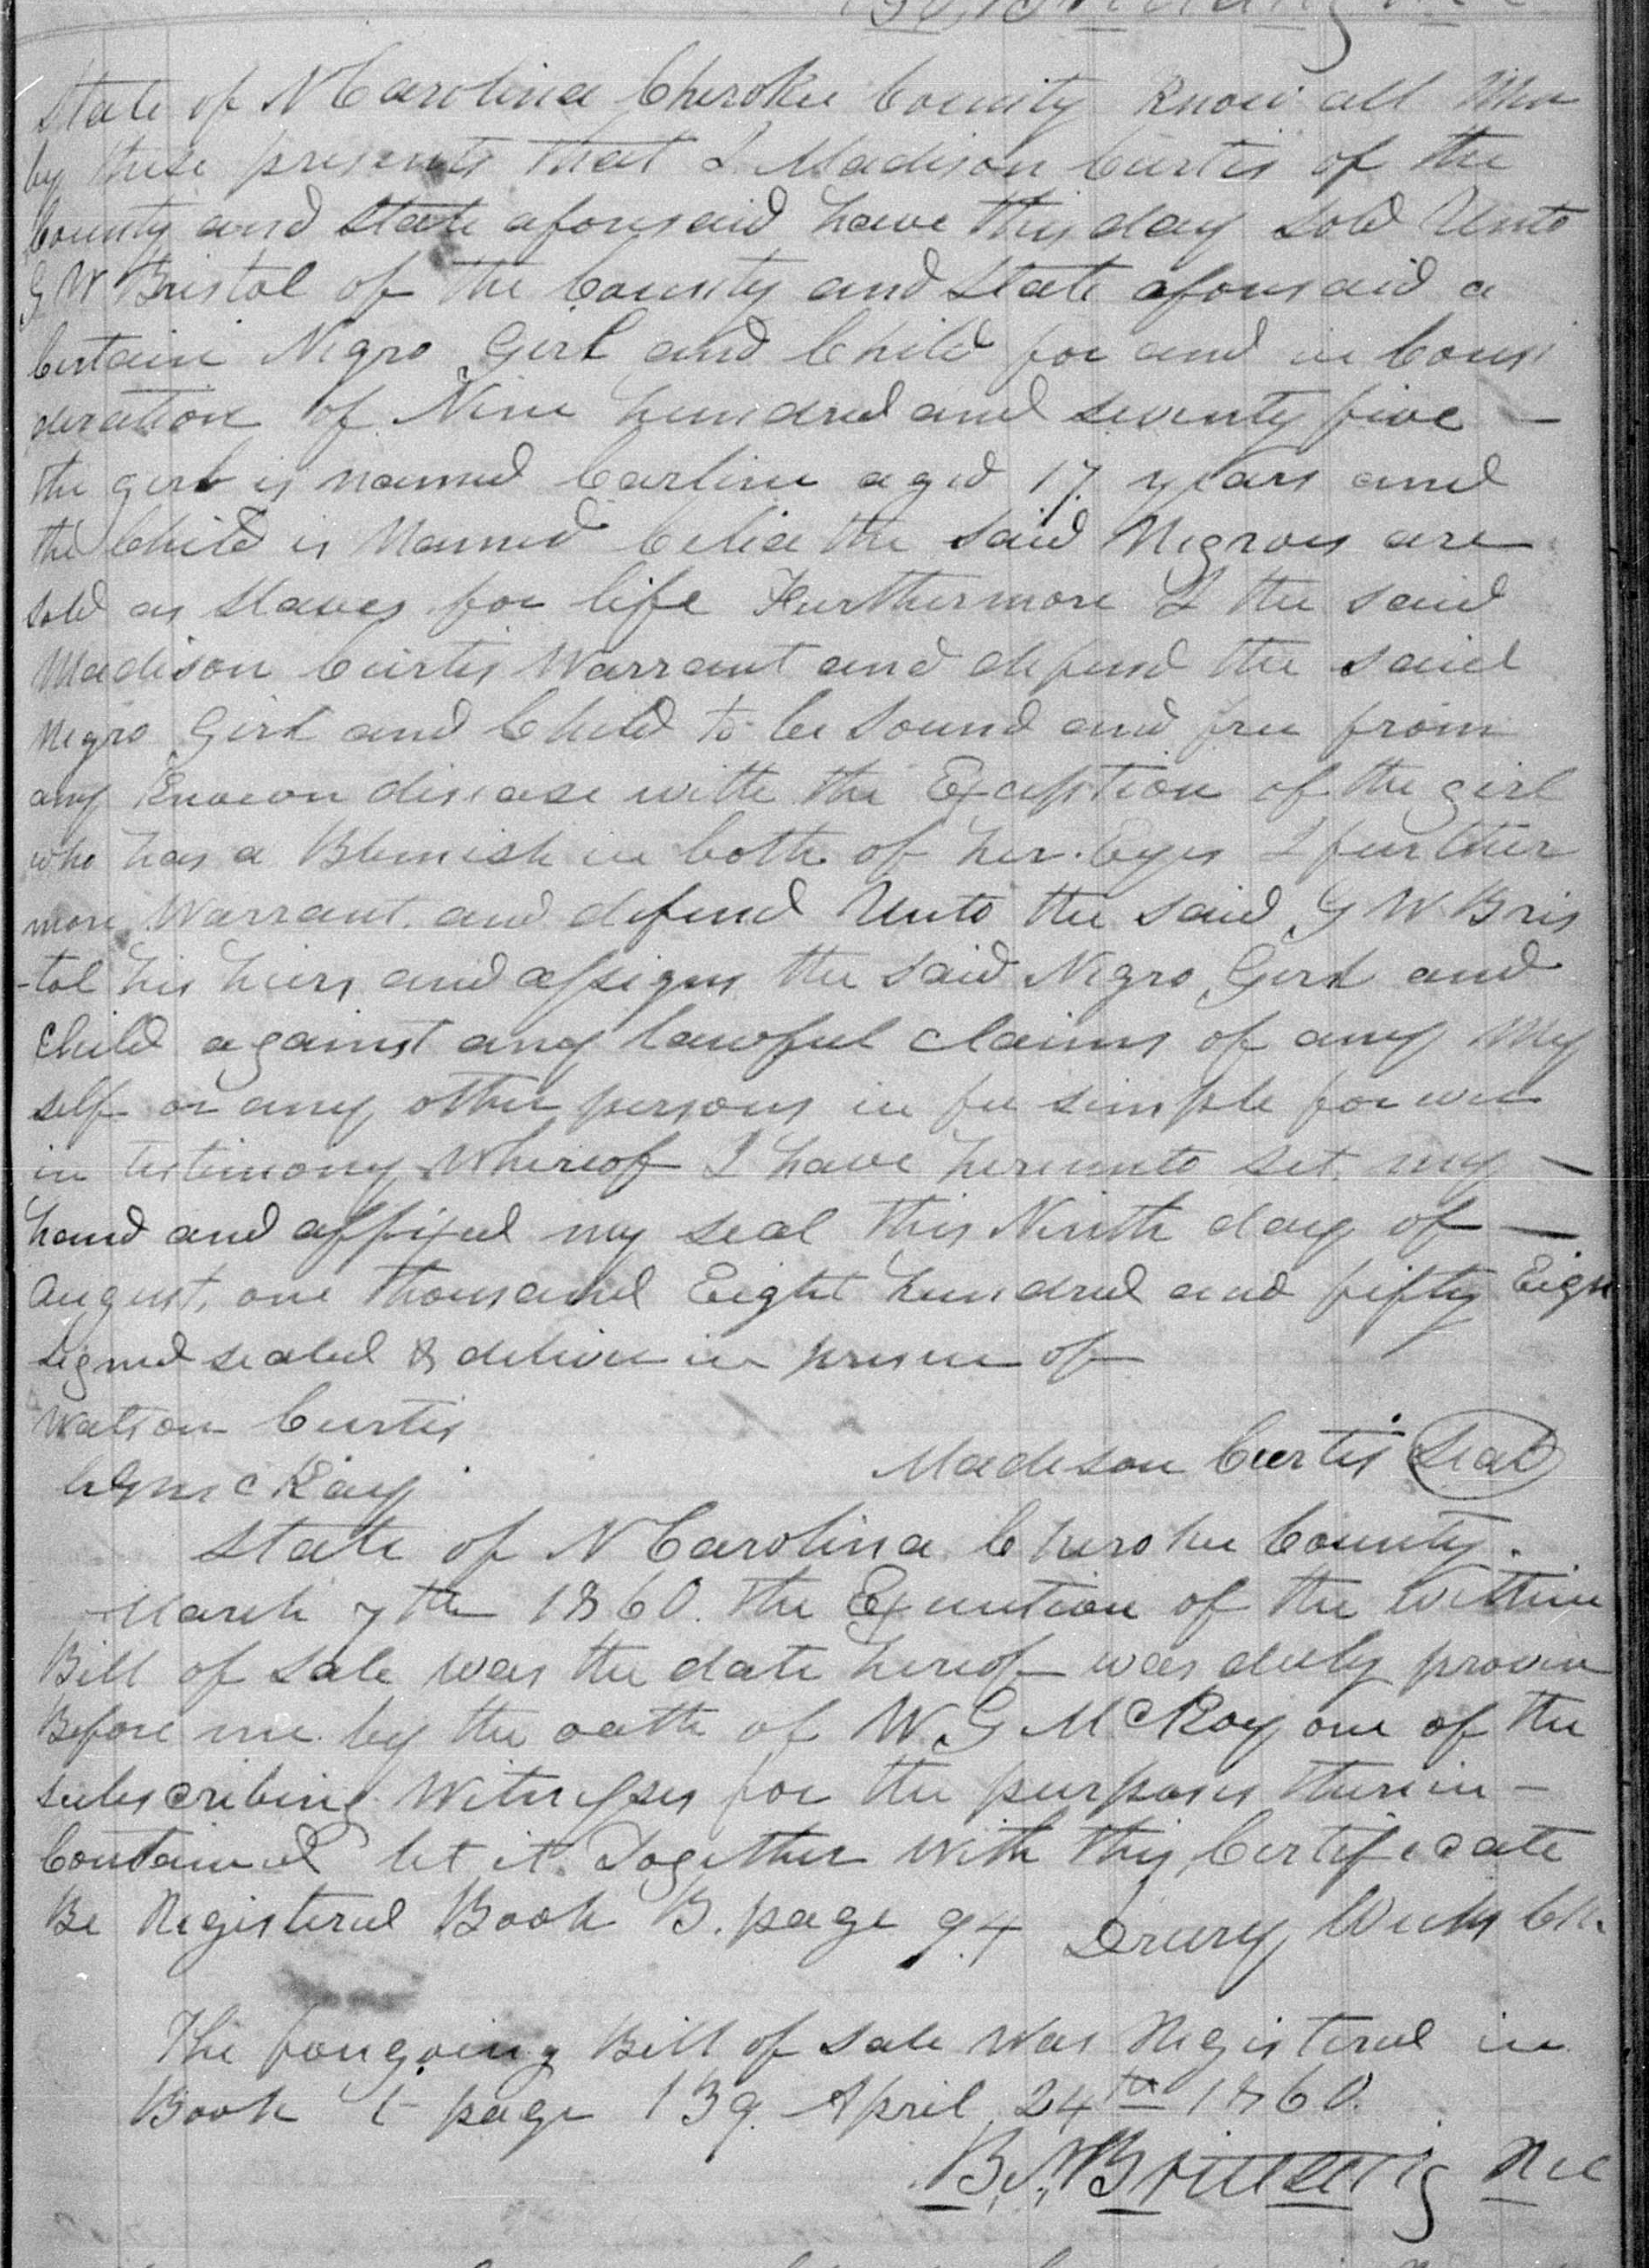 State of N Carolina Cherokee County Know all Men
by these presents that I Madison Curtis of the
County and State aforesaid have this day sold Unto
G W Bristol of the County and State aforesaid a
Certain Negro Girl and Child for and in Consi
deration of Nine hundred and seventy five —
the girl is named Carline aged 17 years and
the Child is Named Celia the said Negroes are
sold as slaves for life Furthermore I the said
Madison Curtis Warrant and defend the said
Negro Girl and Child to be sound and free from
any Known disease with the Exception of the girl
who has a Blemish in both of her Eyes I further
more Warrant and defend Unto the said G W Bris
-tol his hiers and assigns the said Negro Girl and
Child against any lawful claims of any My
self or any other persons in fee simple forever
in testimony Whereof I have hereunto set my —
hand and affixed my seal this Ninth day of —
August, one thousand Eight hundred and fifty Eigh
signed sealed & deliver in presen of
Watson Curtis
McRay
Madison Curtis Seal
State of N Carolina Cherokee County.
March 7th 1860. the Execution of the Within
Bill of Sale was the date hereof was duly proven
Before me by the oath of W. G McRoy one of the
subscribing Witnesses for the purposes therein —
Contained let it Together with this Certificate
Be Registered Book B. page 94 Drury Weeks Clk.
The foregoing Bill of Sale Was Registered in
Book page 139. April 24th 1860.